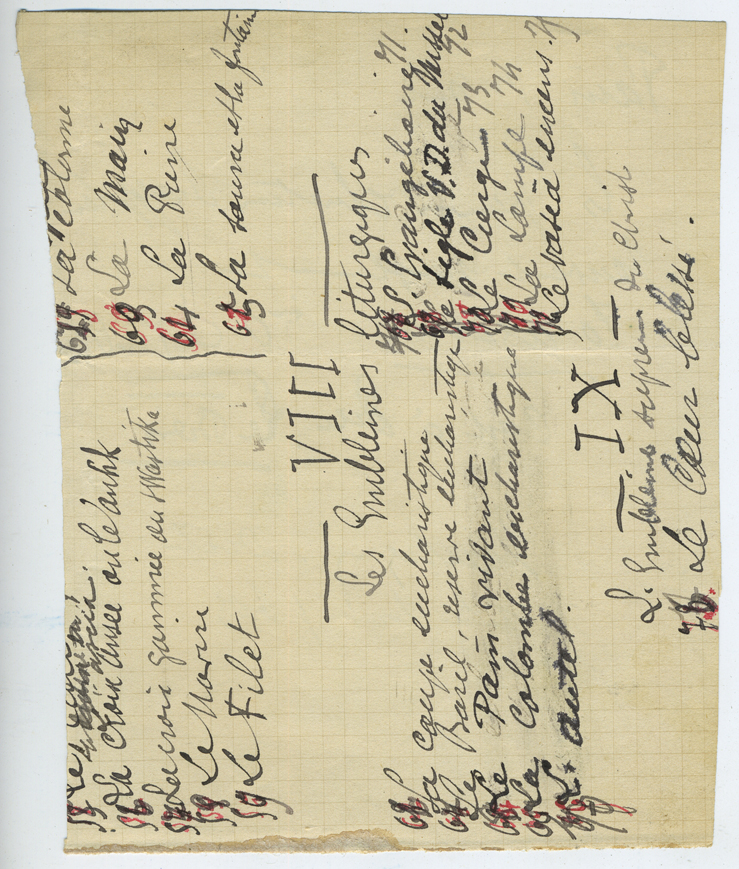 La Croix Ansée ou le ankh
La croix gammée ou swastika
Le Navire
59 Le Filet
La Colonne
63 La Main
64 La Pierre
65 La source et la fontaine
VIII
Les Emblèmes liturgiques
La coupe eucharistique
Baril, réserve eucharistique
Le Pain vivant
La Colombe eucharistique
L' autel.
L' Evangéliaire 71.
Le sigle V.D. du Missel 72
Le Cierge 73
La Lampe 74
Le vase à encens.
IX
L. Emblème suprem. du Christ
76. Le Cœur blessé.